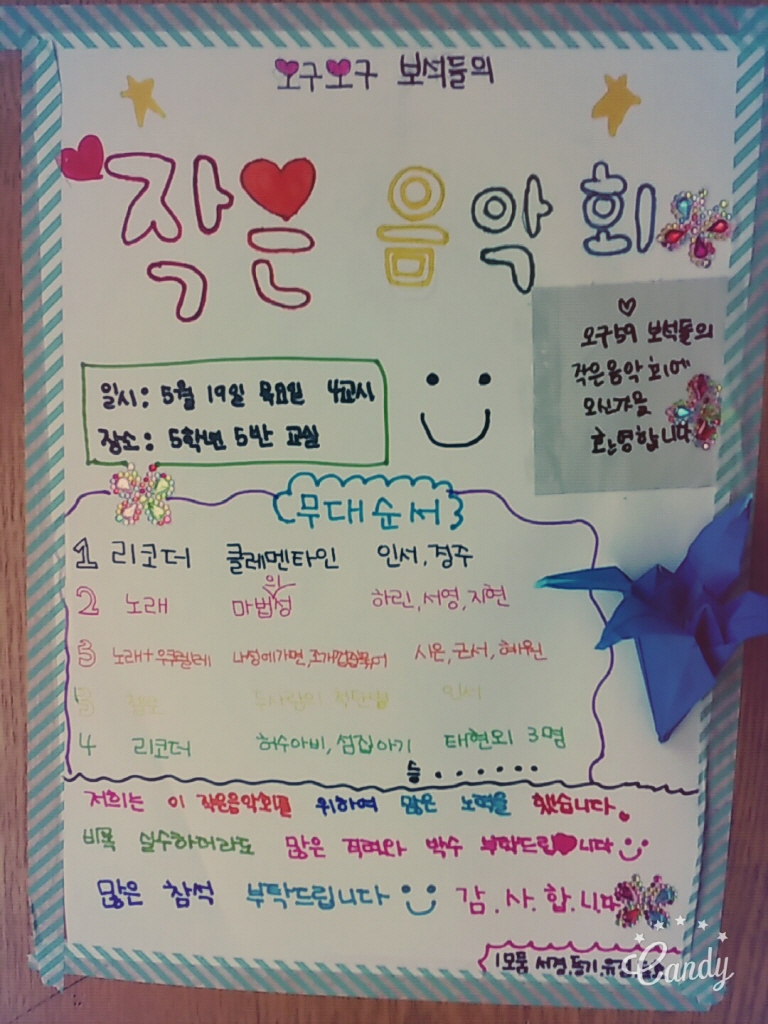 오구오구 보석들의
작은 음악회
오구59 보석들의
작은음악회에
오신것을
환영합니다
일시: 5월 19일 목요일 4교시
장소: 5학년 5반 교실
무대순서
1 리코더 클레멘타인 인서, 경주
2 노래 마법의성 하린, 서영, 지현
3 노래+우쿨렐레 나성에가면, 조개껍질묶어 시은, 군서, 혜원
3 첼로 인서
4 리코더 허수아비, 섬집아기 태현외 3명
등.......
저희는 이 작은음악회를 위하여 많은 노력을 했습니다.
비록 실수하더라도 많은 격려와 박수 부탁드립니다
많은 참석 부탁드립니다 감.사.합.니다
1모둠 서경,
Candy